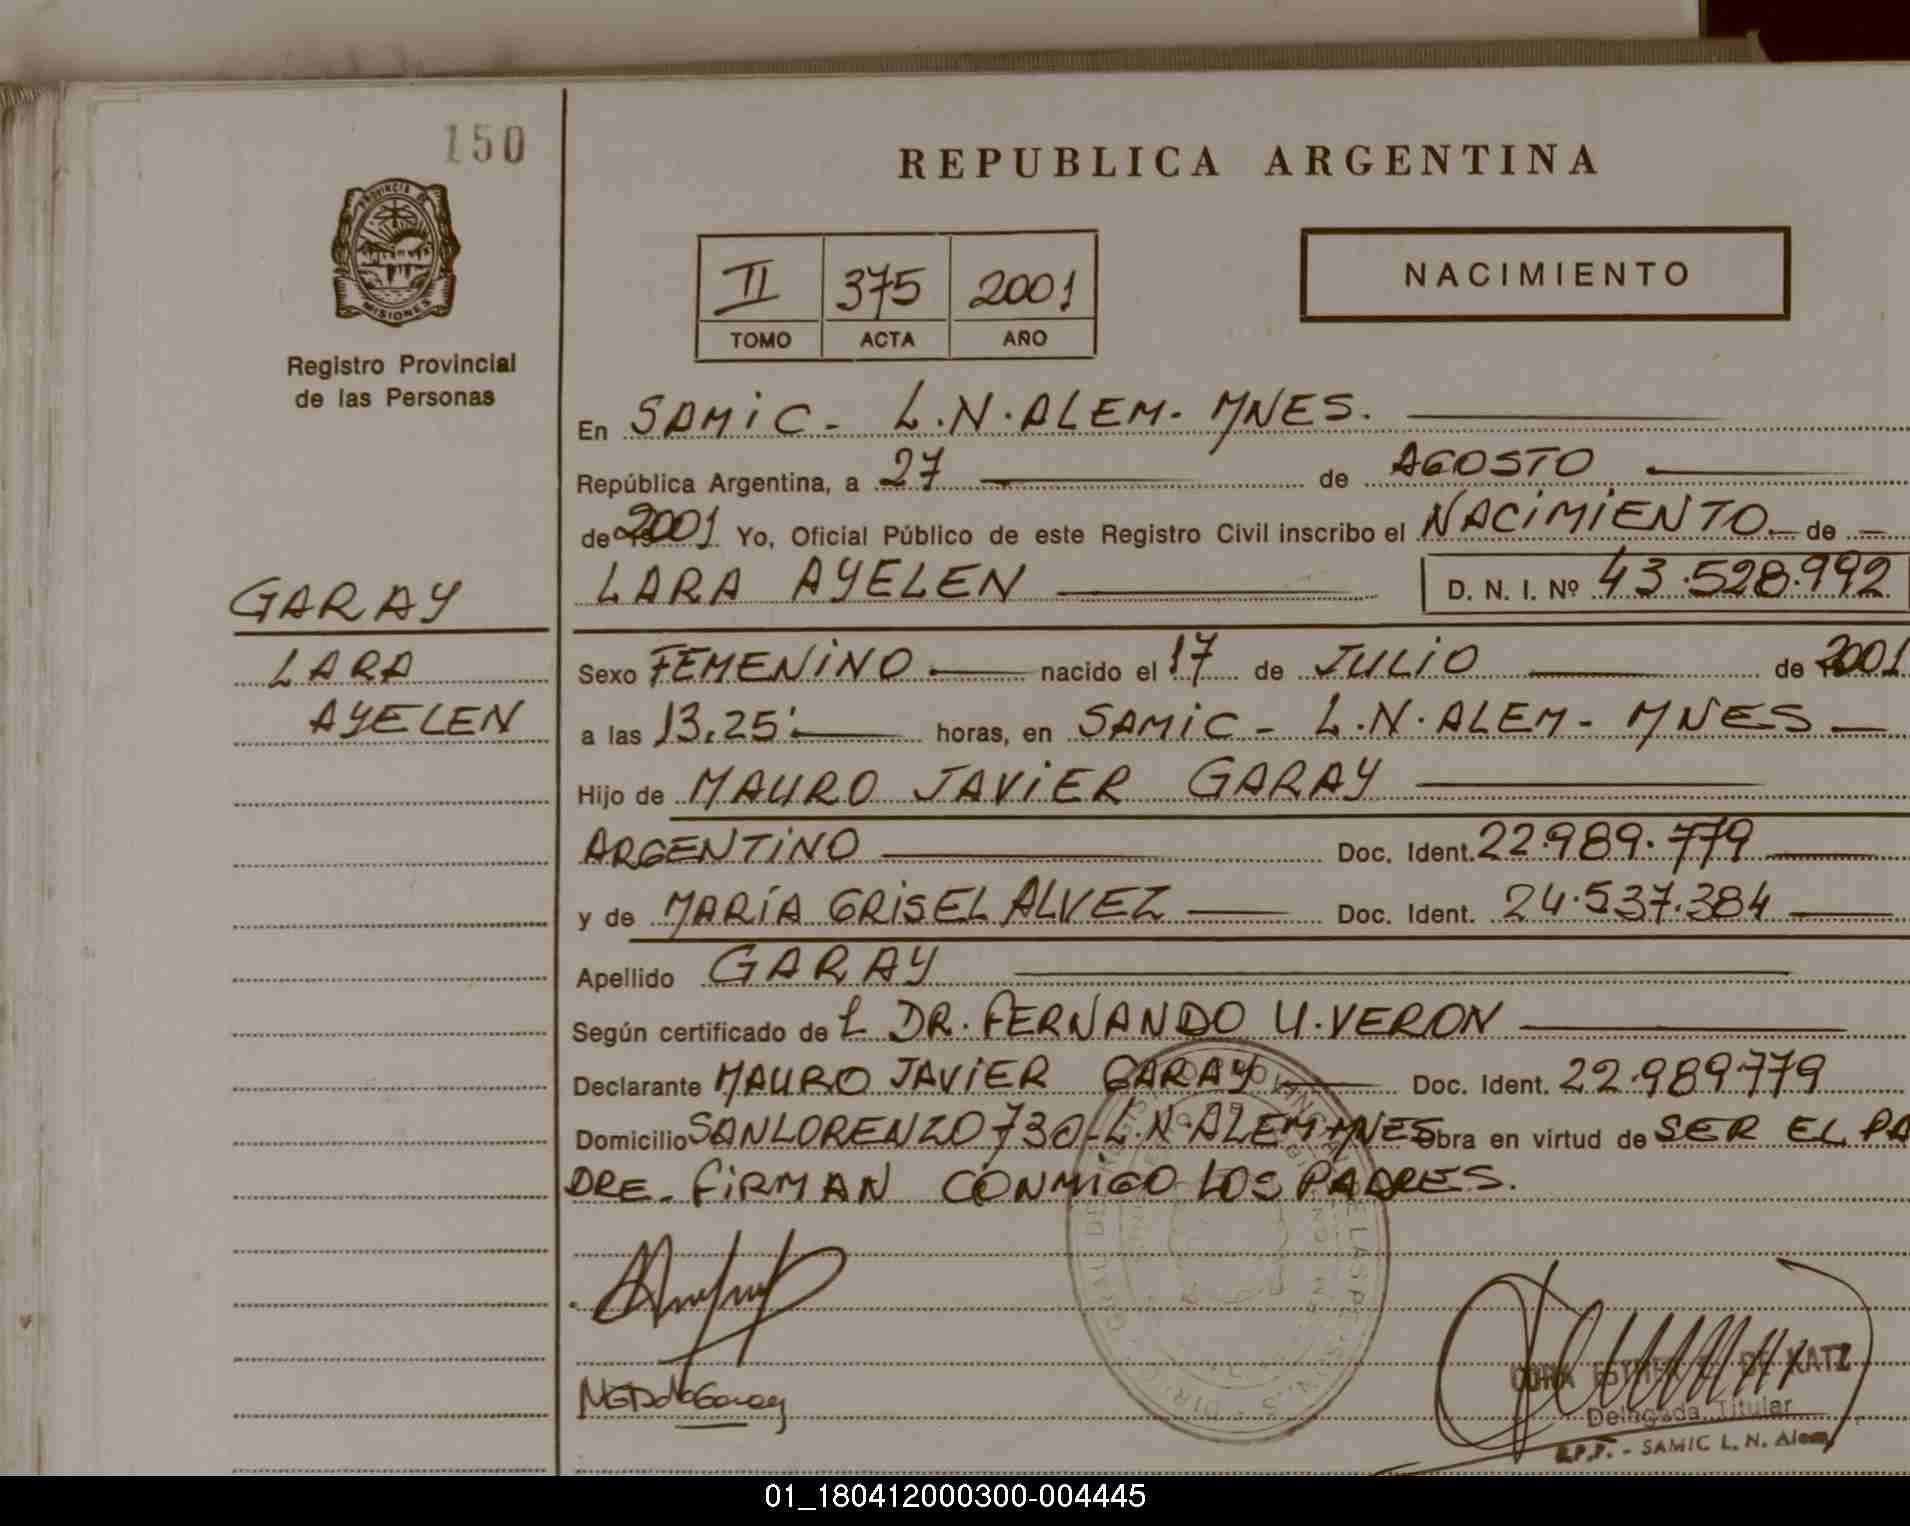 150
REPUBLICA ARGENTINA
PROVINCIA DE
MISIONES
Registro Provincial
de las Personas
II 375 2001
TOMO ACTA AÑO
NACIMIENTO
En SAMIC - L.N. ALEM - MNES.
República Argentina, a 27 de AGOSTO
de 2001 Yo, Oficial Público de este Registro Civil inscribo el NACIMIENTO de
LARA AYELEN D. N. I. Nº 43.528.992
GARAY
LARA
AYELEN
Sexo FEMENINO nacido el 17 de JULIO de 2001
a las 13,25' horas, en SAMIC - L.N. ALEM - MNES
Hijo de MAURO JAVIER GARAY
ARGENTINO Doc. Ident. 22.989.779
y de MARÍA GRISEL ALVEZ Doc. Ident. 24.537.384
Apellido GARAY
Según certificado de L DR. FERNANDO U. VERON
Declarante MAURO JAVIER GARAY Doc. Ident. 22.989.779
Domicilio SAN LORENZO 730 - L.N. ALEM - MNES Obra en virtud de SER EL PA
DRE - FIRMAN CONMIGO LOS PADRES.
DE KATZ
Delegada Titular
R.P.P. - SAMIC L. N. Alem
01_180412000300-004445